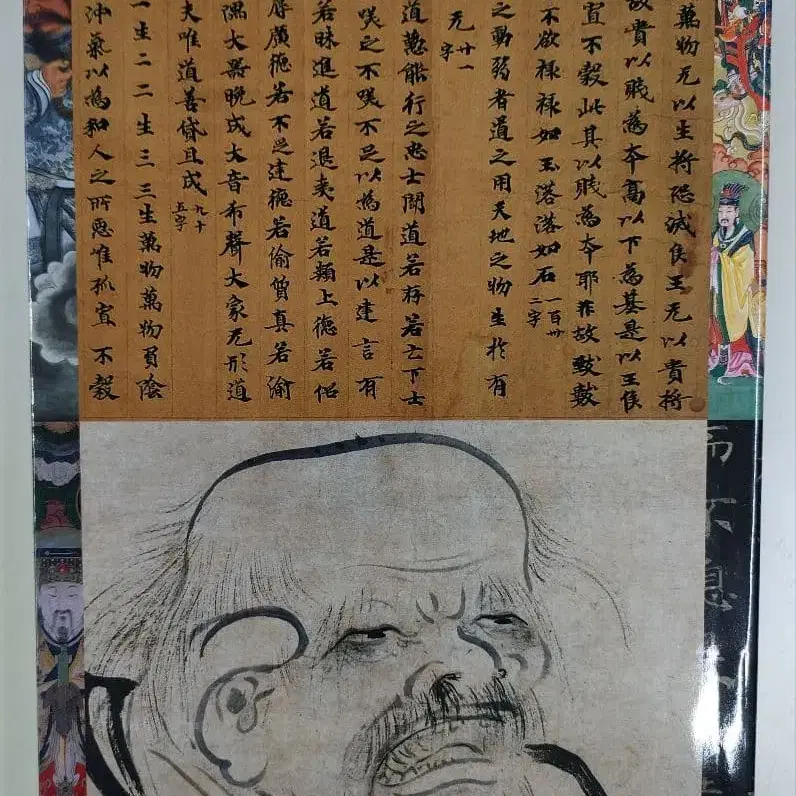 萬物无以生將恐滅侯王无以貴將
故貴以賤為本高以下為基是以王侯
寡不穀此其以賤為本耶非故致數
不欲祿祿如玉落落如石一百卅二字
之動弱者道之用天地之物生於有
无廿一字
道懃能行之忠士聞道若存若亡下士
咲之不咲不足以為道是以建言有
若昧進道若退夷道若類上德若俗
辱廣德若不足建德若偷質真若渝
隅大器晚成大音希聲大象无形道
夫唯道善貸且成九十五字
一生二二生三三生萬物萬物負陰
沖氣以為和人之所惡惟孤寡不穀
而不息